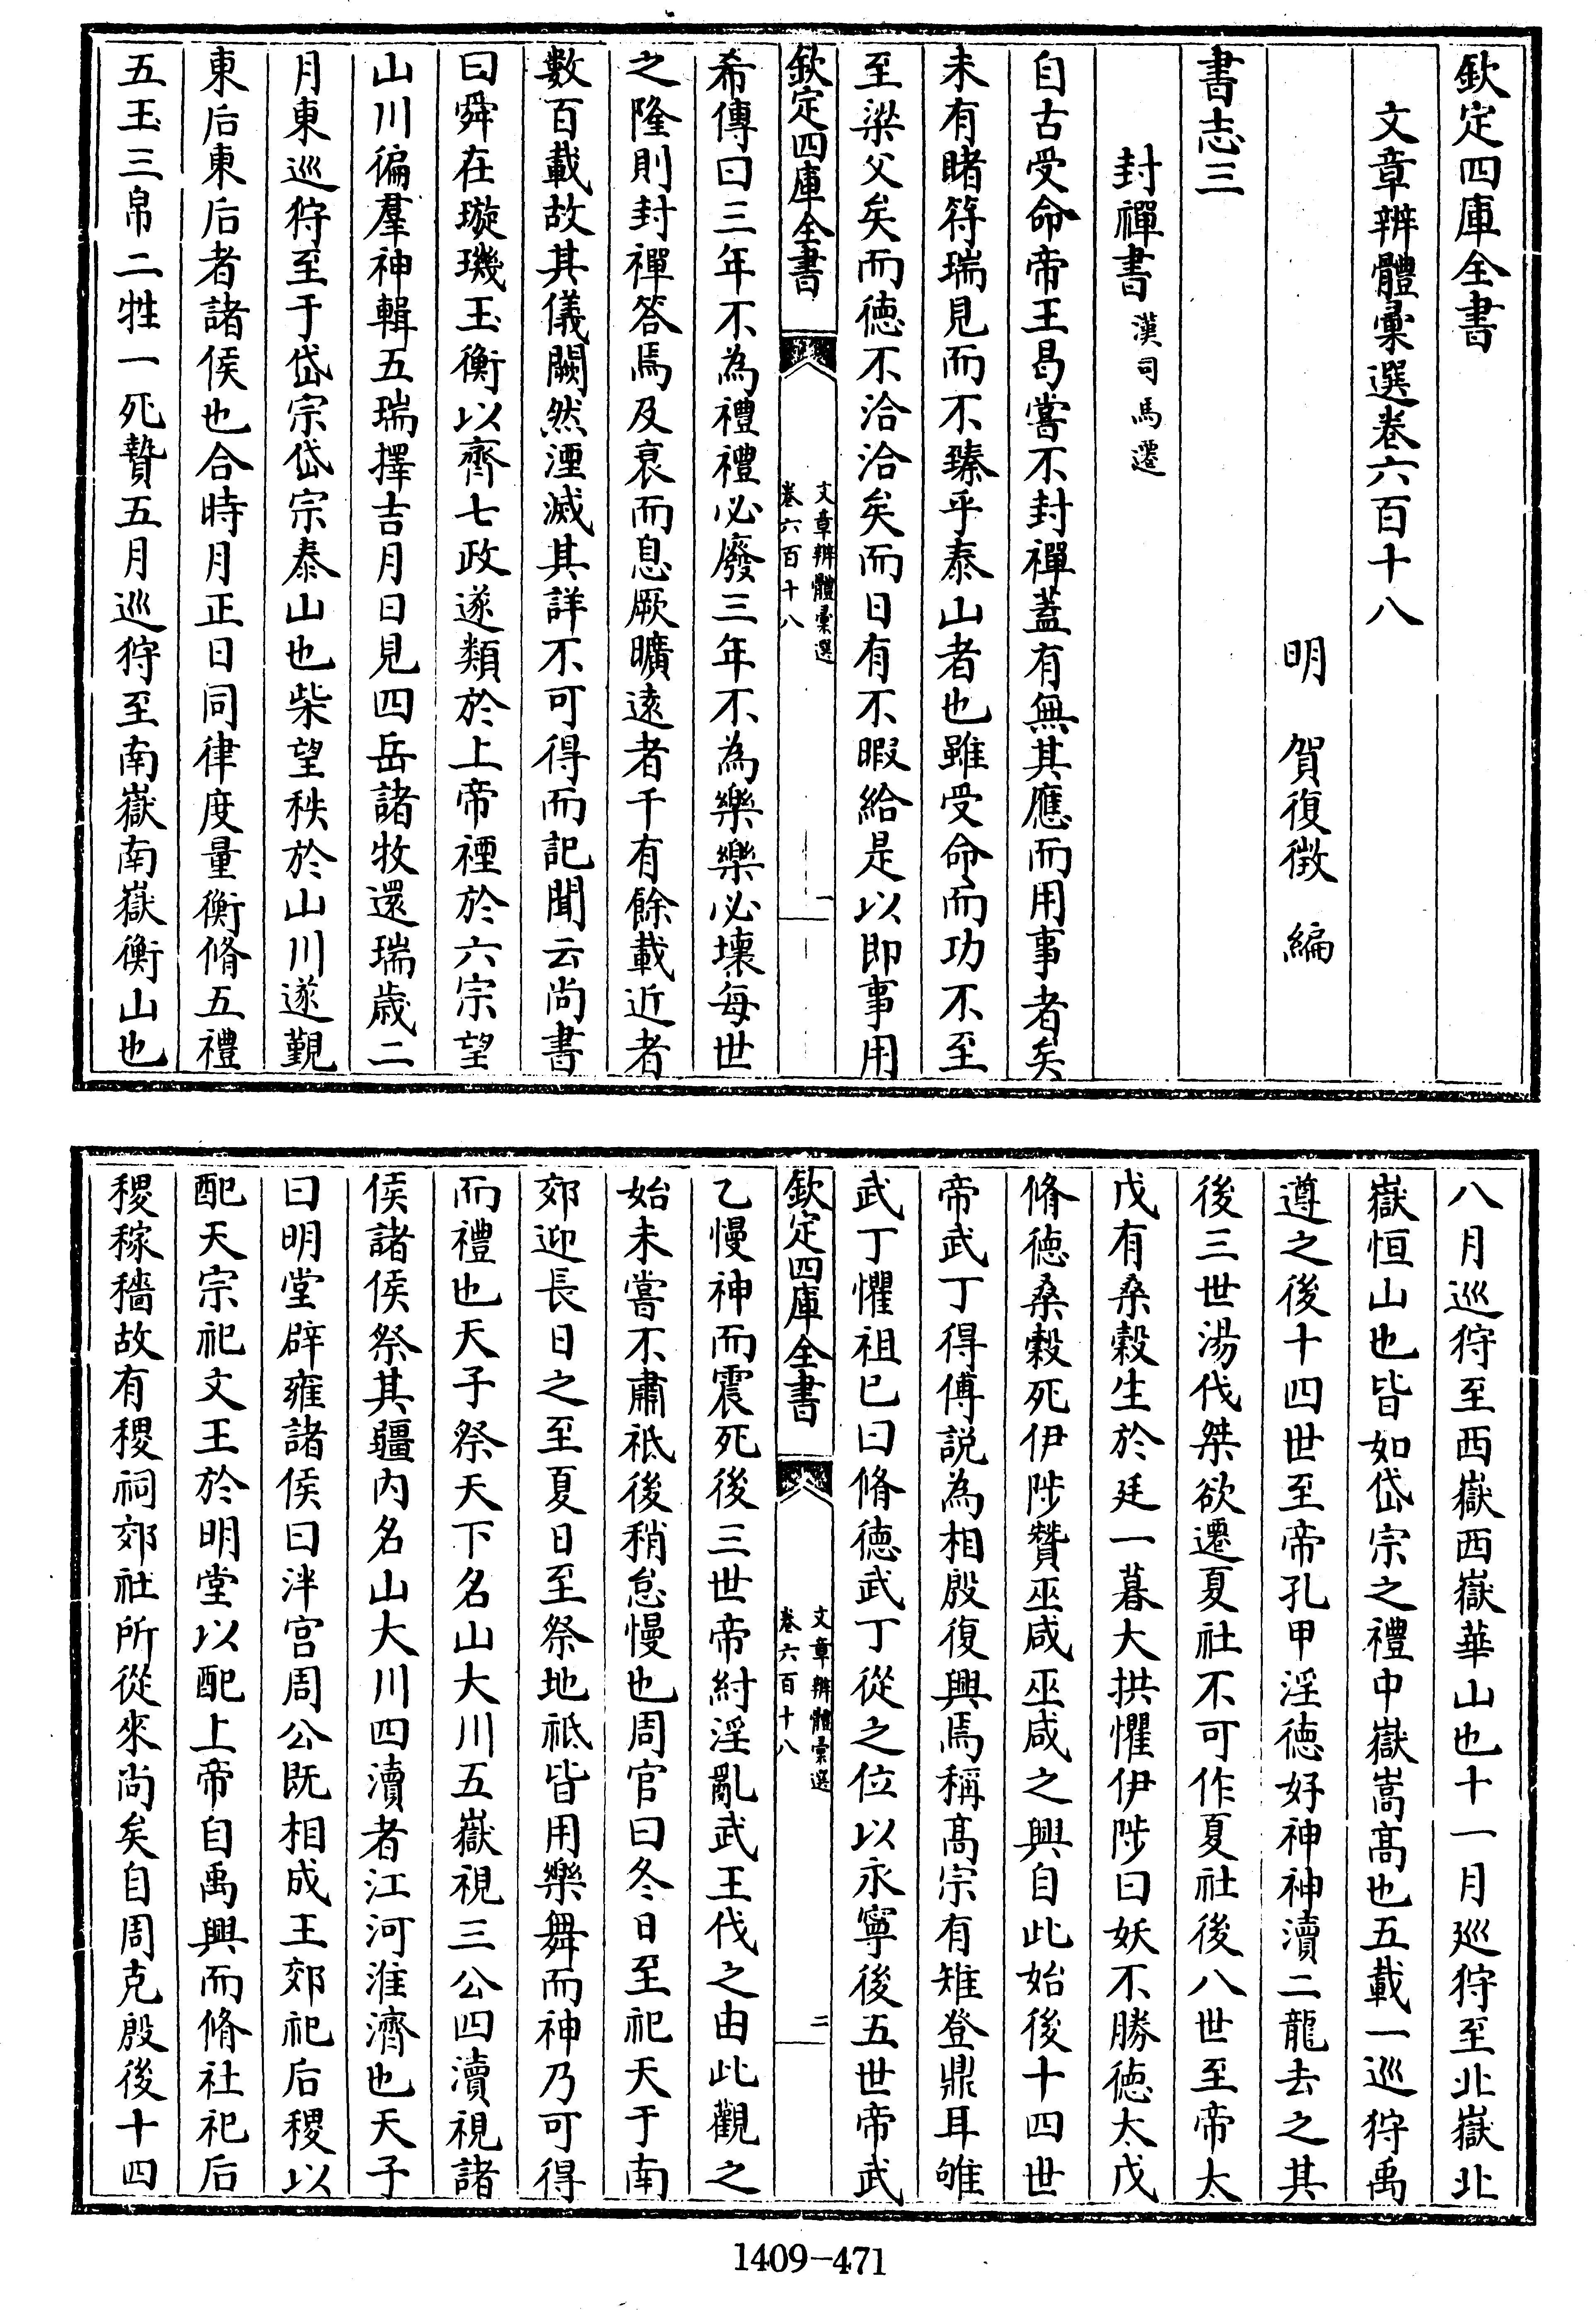 欽定四庫全書
文章辨體彙選卷六百十八
明 賀復徵 編
書志三
封禪書 漢司馬遷
自古受命帝王曷嘗不封禪蓋有無其應而用事者矣
未有睹符瑞見而不臻乎泰山者也雖受命而功不至
至梁父矣而德不洽洽矣而日有不暇給是以即事用
欽定四庫全書
文章辨體彙選
卷六百十八
一
希傳曰三年不為禮禮必廢三年不為樂樂必壞每世
之隆則封禪答焉及衰而息厥曠遠者千有餘載近者
數百載故其儀闕然湮滅其詳不可得而記聞云尚書
曰舜在璇璣玉衡以齊七政遂類於上帝禋於六宗望
山川徧羣神輯五瑞擇吉月日見四岳諸牧還瑞歲二
月東巡狩至于岱宗岱宗泰山也柴望秩於山川遂覲
東后東后者諸侯也合時月正日同律度量衡脩五禮
五玉三帛二牲一死贄五月巡狩至南嶽南嶽衡山也
八月巡狩至西嶽西嶽華山也十一月巡狩至北嶽北
嶽恒山也皆如岱宗之禮中嶽嵩髙也五載一巡狩禹
遵之後十四世至帝孔甲淫德好神神瀆二龍去之其
後三世湯伐桀欲遷夏社不可作夏社後八世至帝太
戊有桑榖生於廷一暮大拱懼伊陟曰妖不勝德太戊
脩德桑榖死伊陟贊巫咸巫咸之興自此始後十四世
帝武丁得傅説為相殷復興焉稱髙宗有雉登鼎耳雊
武丁懼祖已曰脩德武丁從之位以永寧後五世帝武
欽定四庫全書
文章辨體彙選
卷六百十八
二
乙慢神而震死後三世帝紂淫亂武王伐之由此觀之
始未嘗不肅祗後稍怠慢也周官曰冬日至祀天于南
郊迎長日之至夏日至祭地祗皆用樂舞而神乃可得
而禮也天子祭天下名山大川五嶽視三公四瀆視諸
侯諸侯祭其疆内名山大川四瀆者江河淮濟也天子
曰明堂辟雍諸侯曰泮宫周公既相成王郊祀后稷以
配天宗祀文王於明堂以配上帝自禹興而脩社祀后
稷稼穡故有稷祠郊社所從來尚矣自周克殷後十四
1409-471